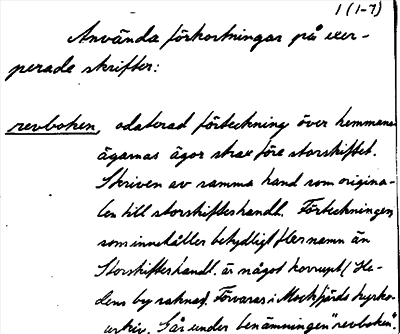 1 (1-7)
Använda förkortningar på excer-
perade skrifter:
revboken, odaterad förteckning över hemmans-
ägarnas ägor strax före storskiftet.
Skriven av samma hand som origina-
len till storskifteshandl. Förteckningen,
som innehåller betydligt fler namn än
Storskifteshandl. är något korrupt (He-
dens by saknas). Förvaras i Mockfjärds kyrko-
arkiv. Går under benämningen "revboken"